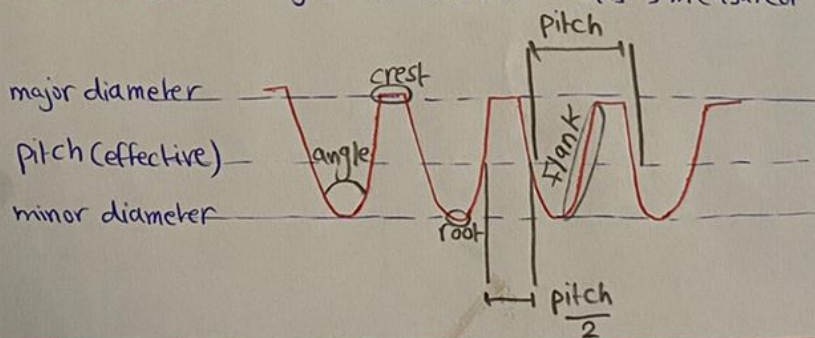 pitch
crest
major diameter
pitch (effective)
angle
flank
minor diameter
root
pitch
2